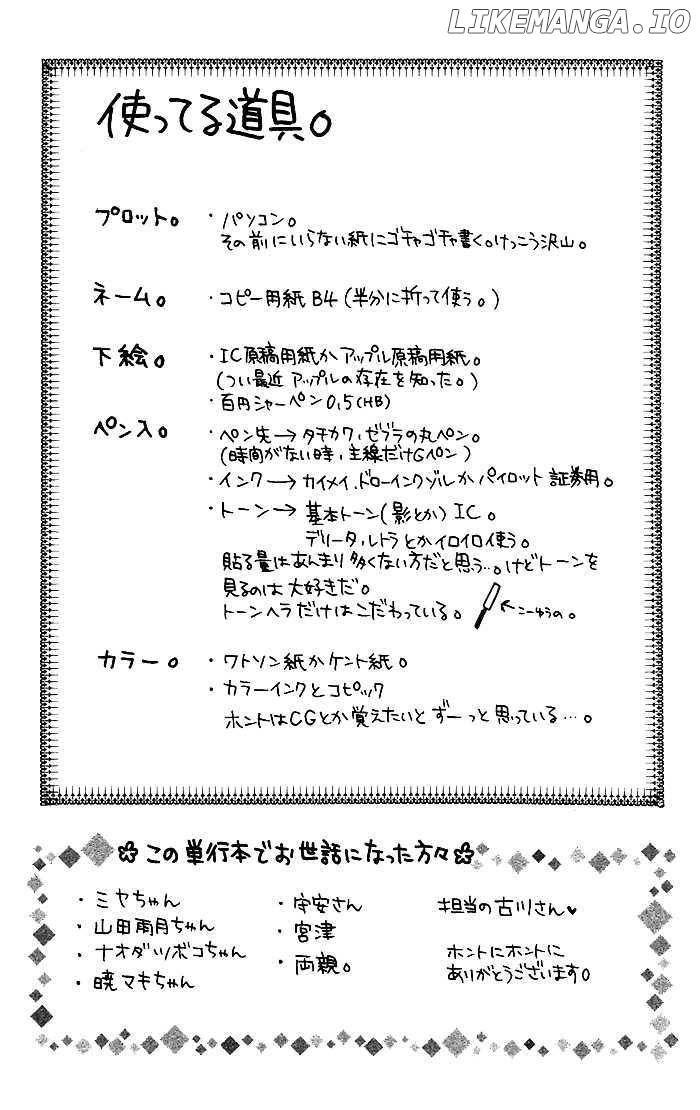 LIKEMANGA.IO
使ってる道具。
プロット。 ・パソコン。
その前にいらない紙にゴチャゴチャ書く。けっこう沢山。
ネーム。 ・コピー用紙 B4 (半分に折って使う。)
下絵。 ・IC原稿用紙か アップル原稿用紙。
(つい最近 アップルの存在を知った。)
・百円シャーペン 0.5(HB)
ペン入。 ・ペン先→タチカワ、ゼブラの丸ペン。
(時間がない時、主線だけGペン)
・インク→カイメイ.ドローインクゾルか パイロット 証券用。
・トーン→ 基本トーン(影とか) IC。
デリータ、レトラとかイロイロ使う。
貼る量はあんまり多くない方だと思う…。けどトーンを
見るのは 大好きだ。
トーンヘラだけはこだわっている。 ←こーゆうの。
カラー。 ・ワトソン紙かケント紙。
・カラーインクとコピック
ホントはCGとか覚えたいとずーっと思っている…。
この単行本でお世話になった方々
・ミヤちゃん
・山田雨月ちゃん
・ナオダツボコちゃん
・暁マキちゃん
・宇安さん
・宮津
・両親。
担当の古川さん♥
ホントにホントに
ありがとうございます。